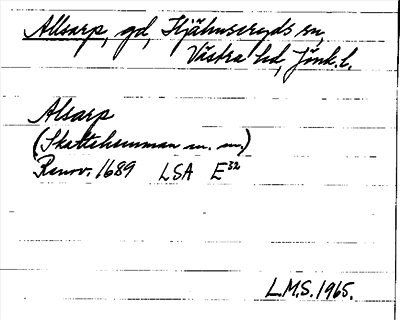 Allsarp, gd, Hjälmseryds sn,
Västra hd, Jönk. l.
Alsarp
(Skattehemman m. m.)
Renov. 1689 LSA E32
L.M.S. 1965.